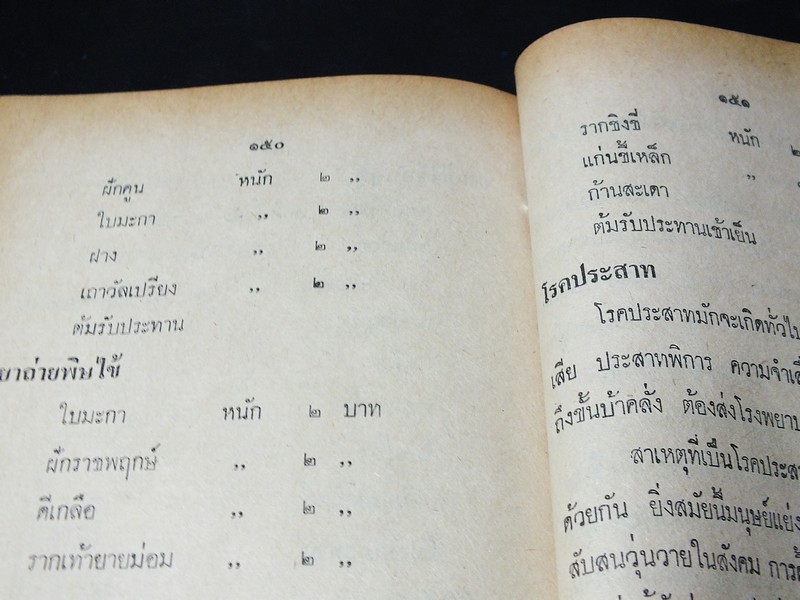 ๑๕๐
ฝักคูน หนัก ๒ ,,
ใบมะกา ,, ๒ ,,
ฝาง ,, ๒ ,,
เถาวัลเปรียง ,, ๒ ,,
ต้มรับประทาน
ยาถ่ายพิษไข้
ใบมะกา หนัก ๒ บาท
ฝักราชพฤกษ์ ,, ๒ ,,
ดีเกลือ ,, ๒ ,,
รากเท้ายายม่อม ,, ๒ ,,
๑๕๑
รากชิงชี่ หนัก
แก่นขี้เหล็ก ,,
ก้านสะเดา
ต้มรับประทานเช้าเย็น
โรคประสาท
โรคประสาทมักจะเกิดทั่วไป
เสีย ประสาทพิการ ความจำเ
ถึงขั้นบ้าคลั่ง ต้องส่งโรงพยาบ
สาเหตุที่เป็นโรคประส
ด้วยกัน ยิ่งสมัยนี้มนุษย์แย่ง
สับสนวุ่นวายในสังคม การ